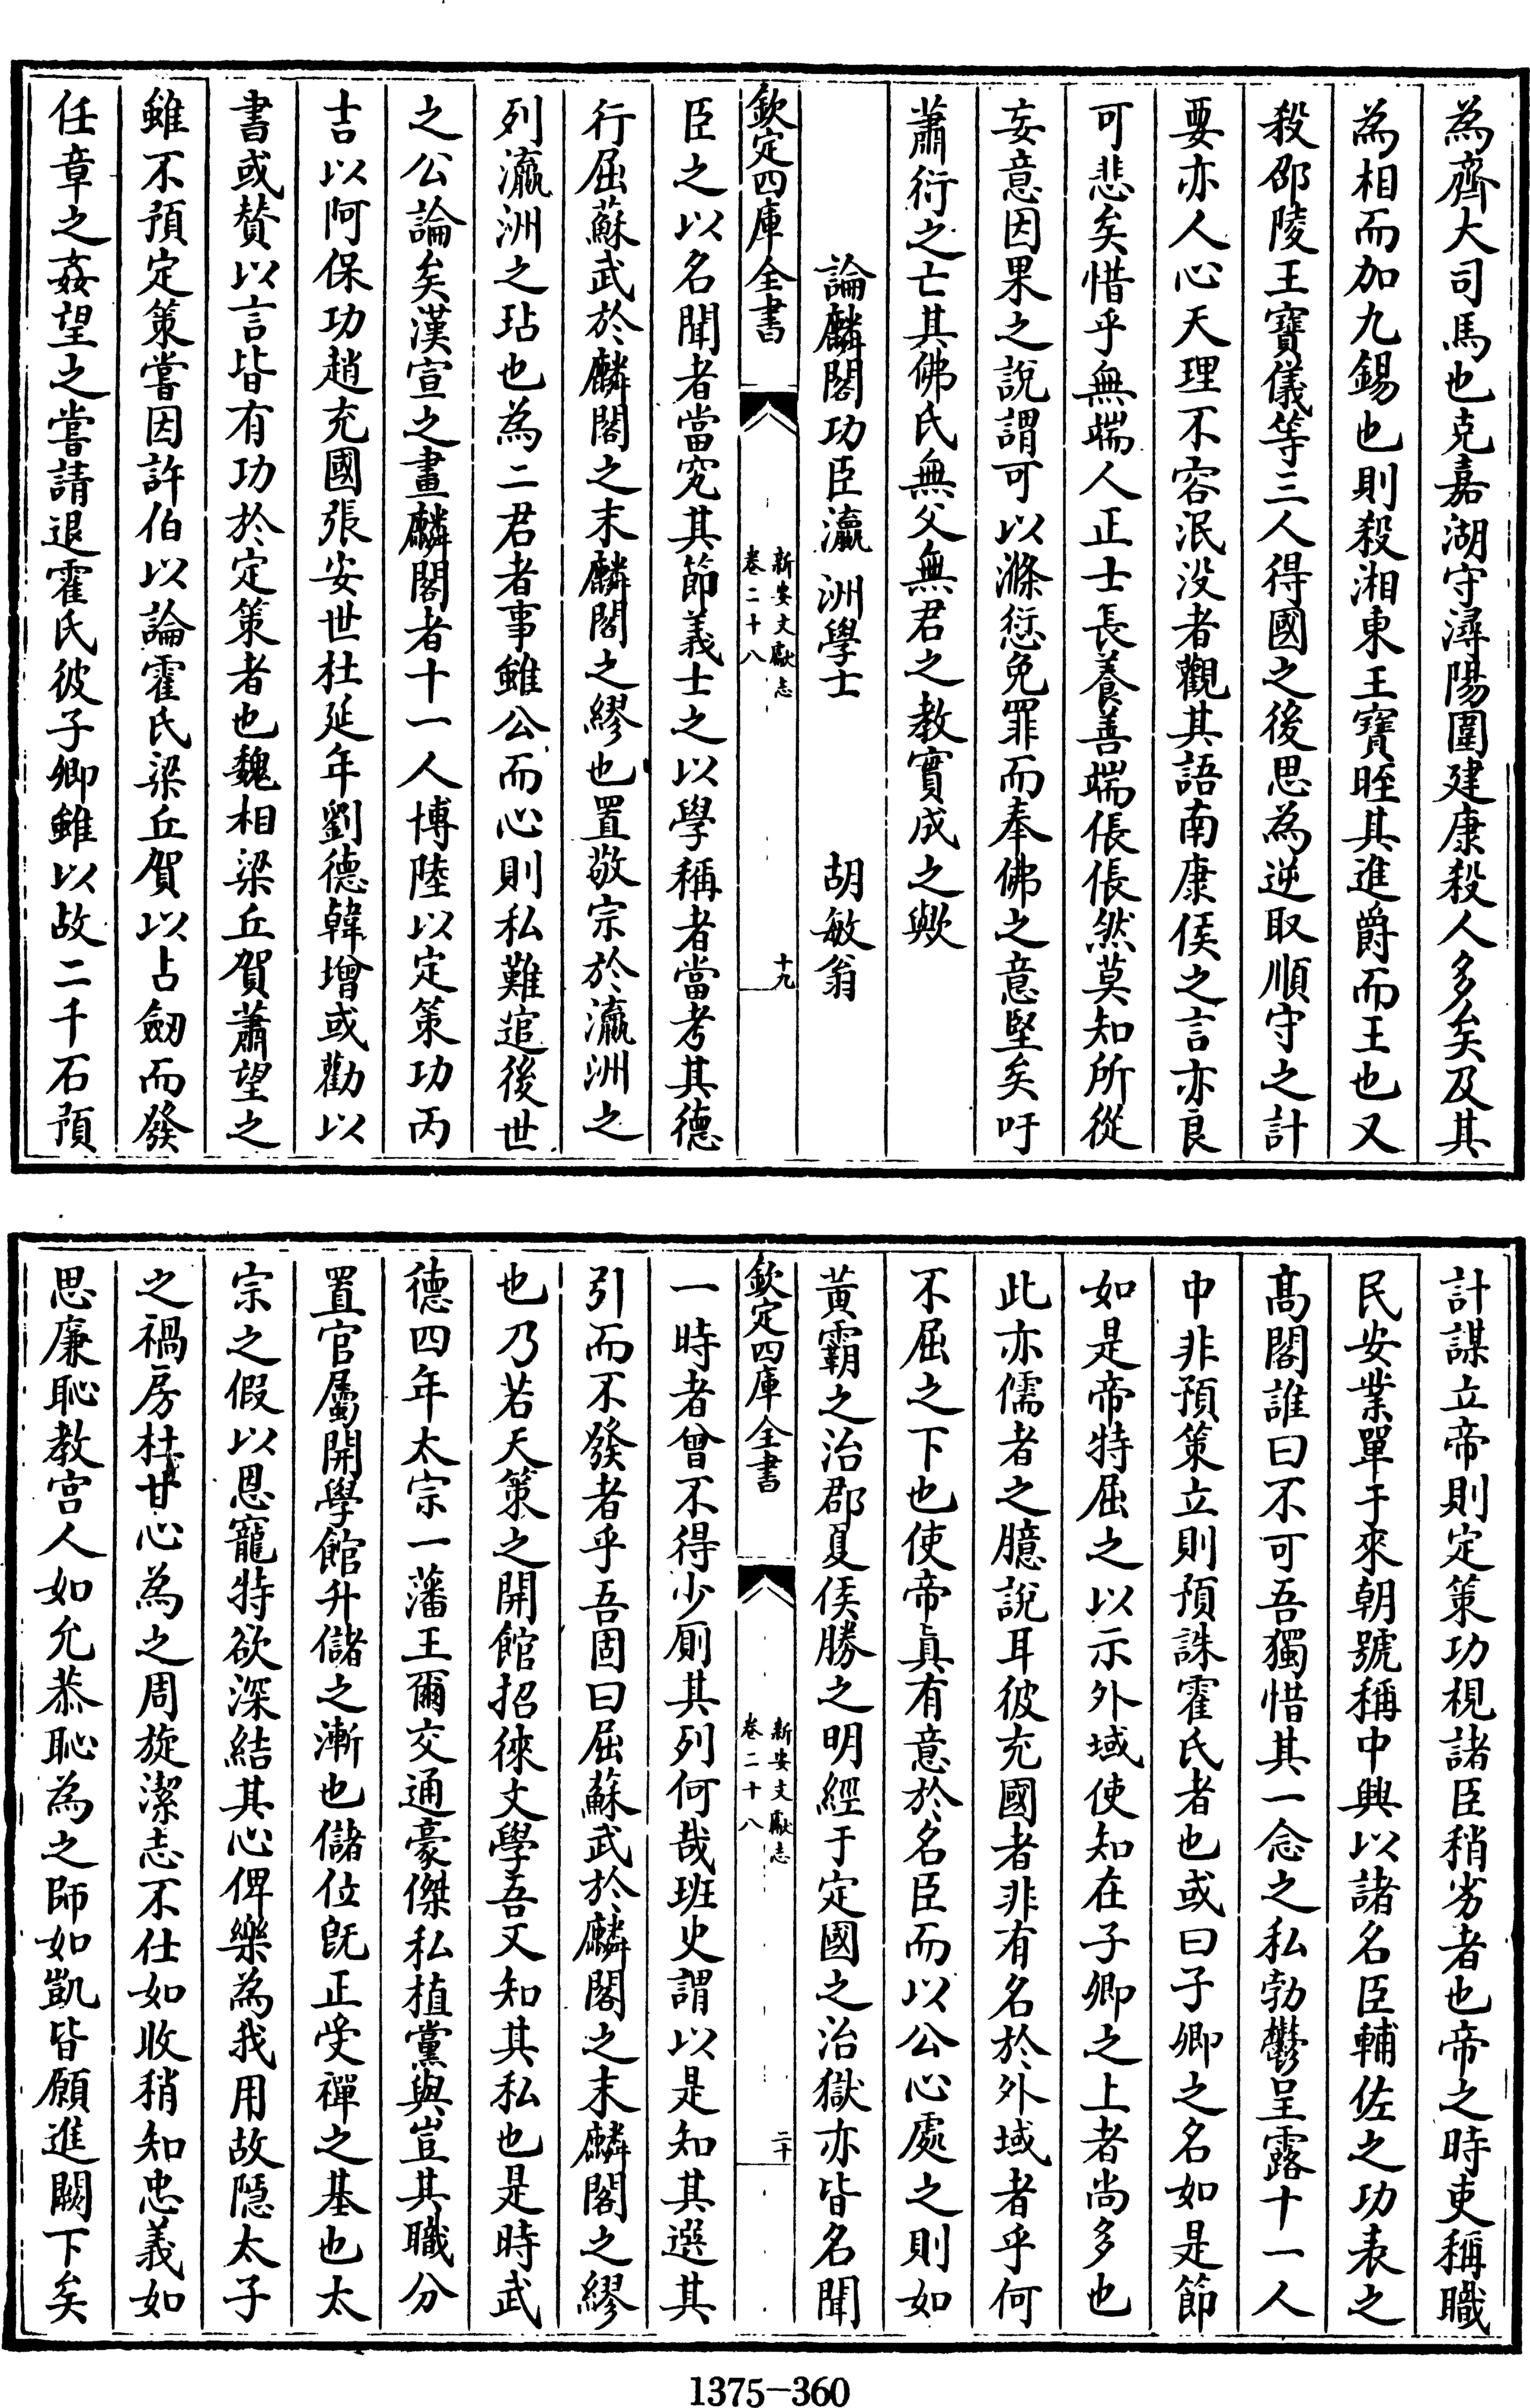 為齊大司馬也克嘉湖守潯陽圍建康殺人多矣及其
為相而加九錫也則殺湘東王寶晊其進爵而王也又
殺邵陵王寶儀等三人得國之後思為逆取順守之計
要亦人心天理不容泯没者觀其語南康侯之言亦良
可悲矣惜乎無端人正士長養善端倀倀然莫知所從
妄意因果之說謂可以滌愆免罪而奉佛之意堅矣吁
蕭衍之亡其佛氏無父無君之教實成之歟
論麟閣功臣瀛洲學士 胡敏翁
欽定四庫全書 新安文獻志 卷二十八 十九
臣之以名聞者當究其節義士之以學稱者當考其德
行屈蘇武於麟閣之末麟閣之繆也置敬宗於瀛洲之
列瀛洲之玷也為二君者事雖公而心則私難逭後世
之公論矣漢宣之畫麟閣者十一人博陸以定策功丙
吉以阿保功趙充國張安世杜延年劉德韓增或勸以
書或贊以言皆有功於定策者也魏相梁丘賀蕭望之
雖不預定策嘗因許伯以論霍氏梁丘賀以占劒而發
任章之姦望之嘗請退霍氏彼子卿雖以故二千石預
計謀立帝則定策功視諸臣稍劣者也帝之時吏稱職
民安業單于來朝號稱中興以諸名臣輔佐之功表之
髙閣誰曰不可吾獨惜其一念之私勃鬱呈露十一人
中非預策立則預誅霍氏者也或曰子卿之名如是節
如是帝特屈之以示外域使知在子卿之上者尚多也
此亦儒者之臆說耳彼充國者非有名於外域者乎何
不屈之下也使帝眞有意於名臣而以公心處之則如
黄霸之治郡夏侯勝之明經于定國之治獄亦皆名聞
欽定四庫全書 新安文獻志 卷二十八 二十
一時者曾不得少厠其列何哉班史謂以是知其選其
引而不發者乎吾固曰屈蘇武於麟閣之末麟閣之繆
也乃若天策之開館招徠文學吾又知其私也是時武
德四年太宗一藩王爾交通豪傑私植黨與豈其職分
置官屬開學館升儲之漸也儲位既正受禪之基也太
宗之假以恩寵特欲深結其心俾樂為我用故隱太子
之禍房杜甘心為之周旋潔志不仕如收稍知忠義如
思廉恥教宫人如允恭恥為之師如凱皆願進闕下矣
1375-360